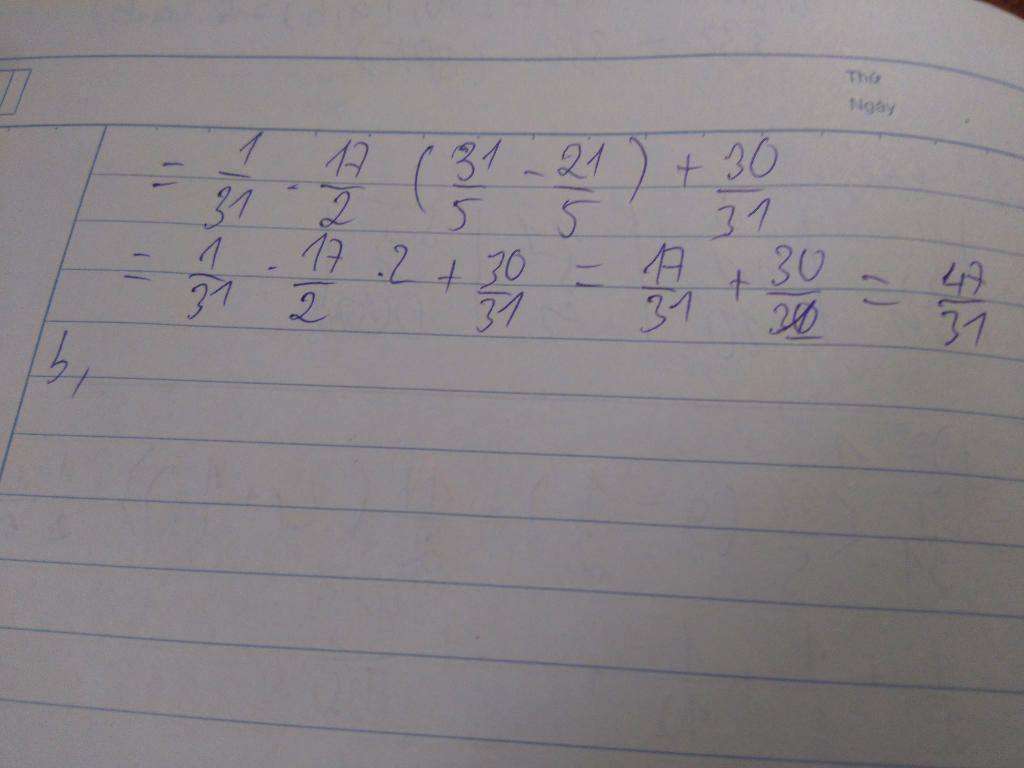 Thứ
Ngày
= 1/31 . 17/2 (31/5 - 21/5) + 30/31
= 1/31 . 17/2 . 2 + 30/31 = 17/31 + 30/31 = 47/31
b,